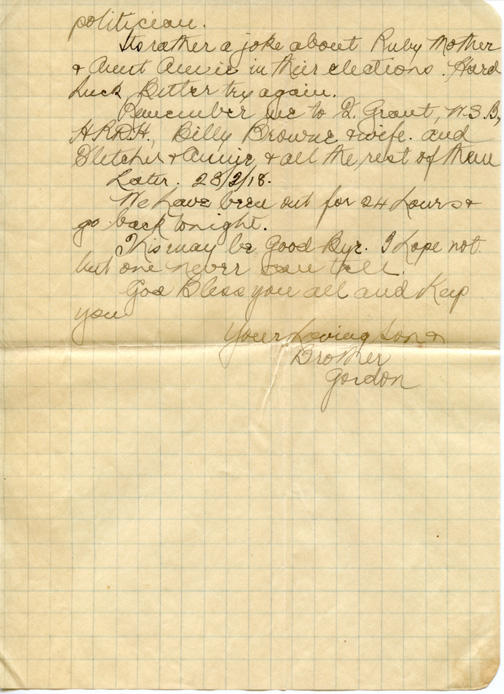 politician.
Its rather a joke about Ruby Mother
& Aunt Annie in their elections. Hard
Luck Better try again.
Remember me to D. Grant, N.S.B,
H.R.R.H, Billy Browne & wife. and
Fletcher & Annie, & all the rest of them
Later. 28/2/18.
We have been out for 24 hours &
go back tonight.
This may be Good Bye. I hope not
but one never can tell.
God Bless you all and Keep
you
Your Loving Son &
Brother
Gordon